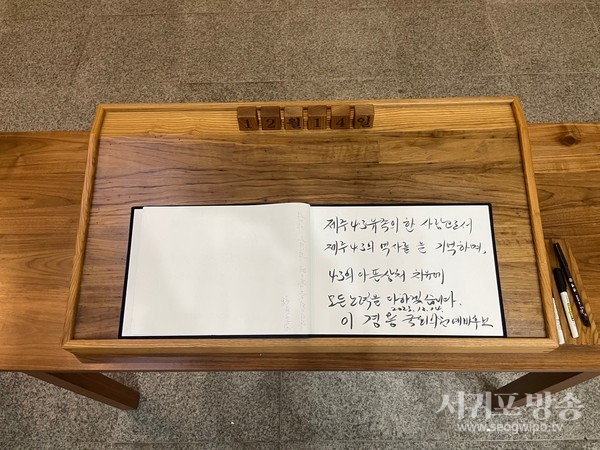 12월14일
제주4·3유족의 한 사람으로서
제주4·3의 역사를 늘 기억하며,
4·3의 아픈상처 치유에
모든 노력을 다하겠습니다.
2023. 12. 14.
이 경용 국회의원예비후보
서귀포방송
www.seogwipo.tv